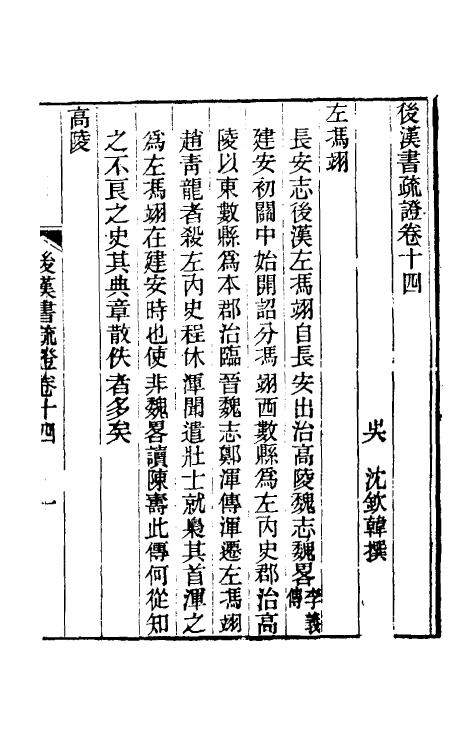 後漢書疏證卷十四
吳 沈欽韓撰
左馮翊
長安志後漢左馮翊自長安出治高陵魏志魏畧李義傳
建安初關中始開詔分馮翊西數縣為左內史郡治高
陵以東數縣為本郡治臨晉魏志鄭渾傳渾遷左馮翊
趙青龍者殺左內史程休渾聞遣壯士就梟其首渾之
為左馮翊在建安時也使非魏畧讀陳壽此傳何從知
之不良之史其典章散佚者多矣
高陵
後漢書疏證卷十四 一